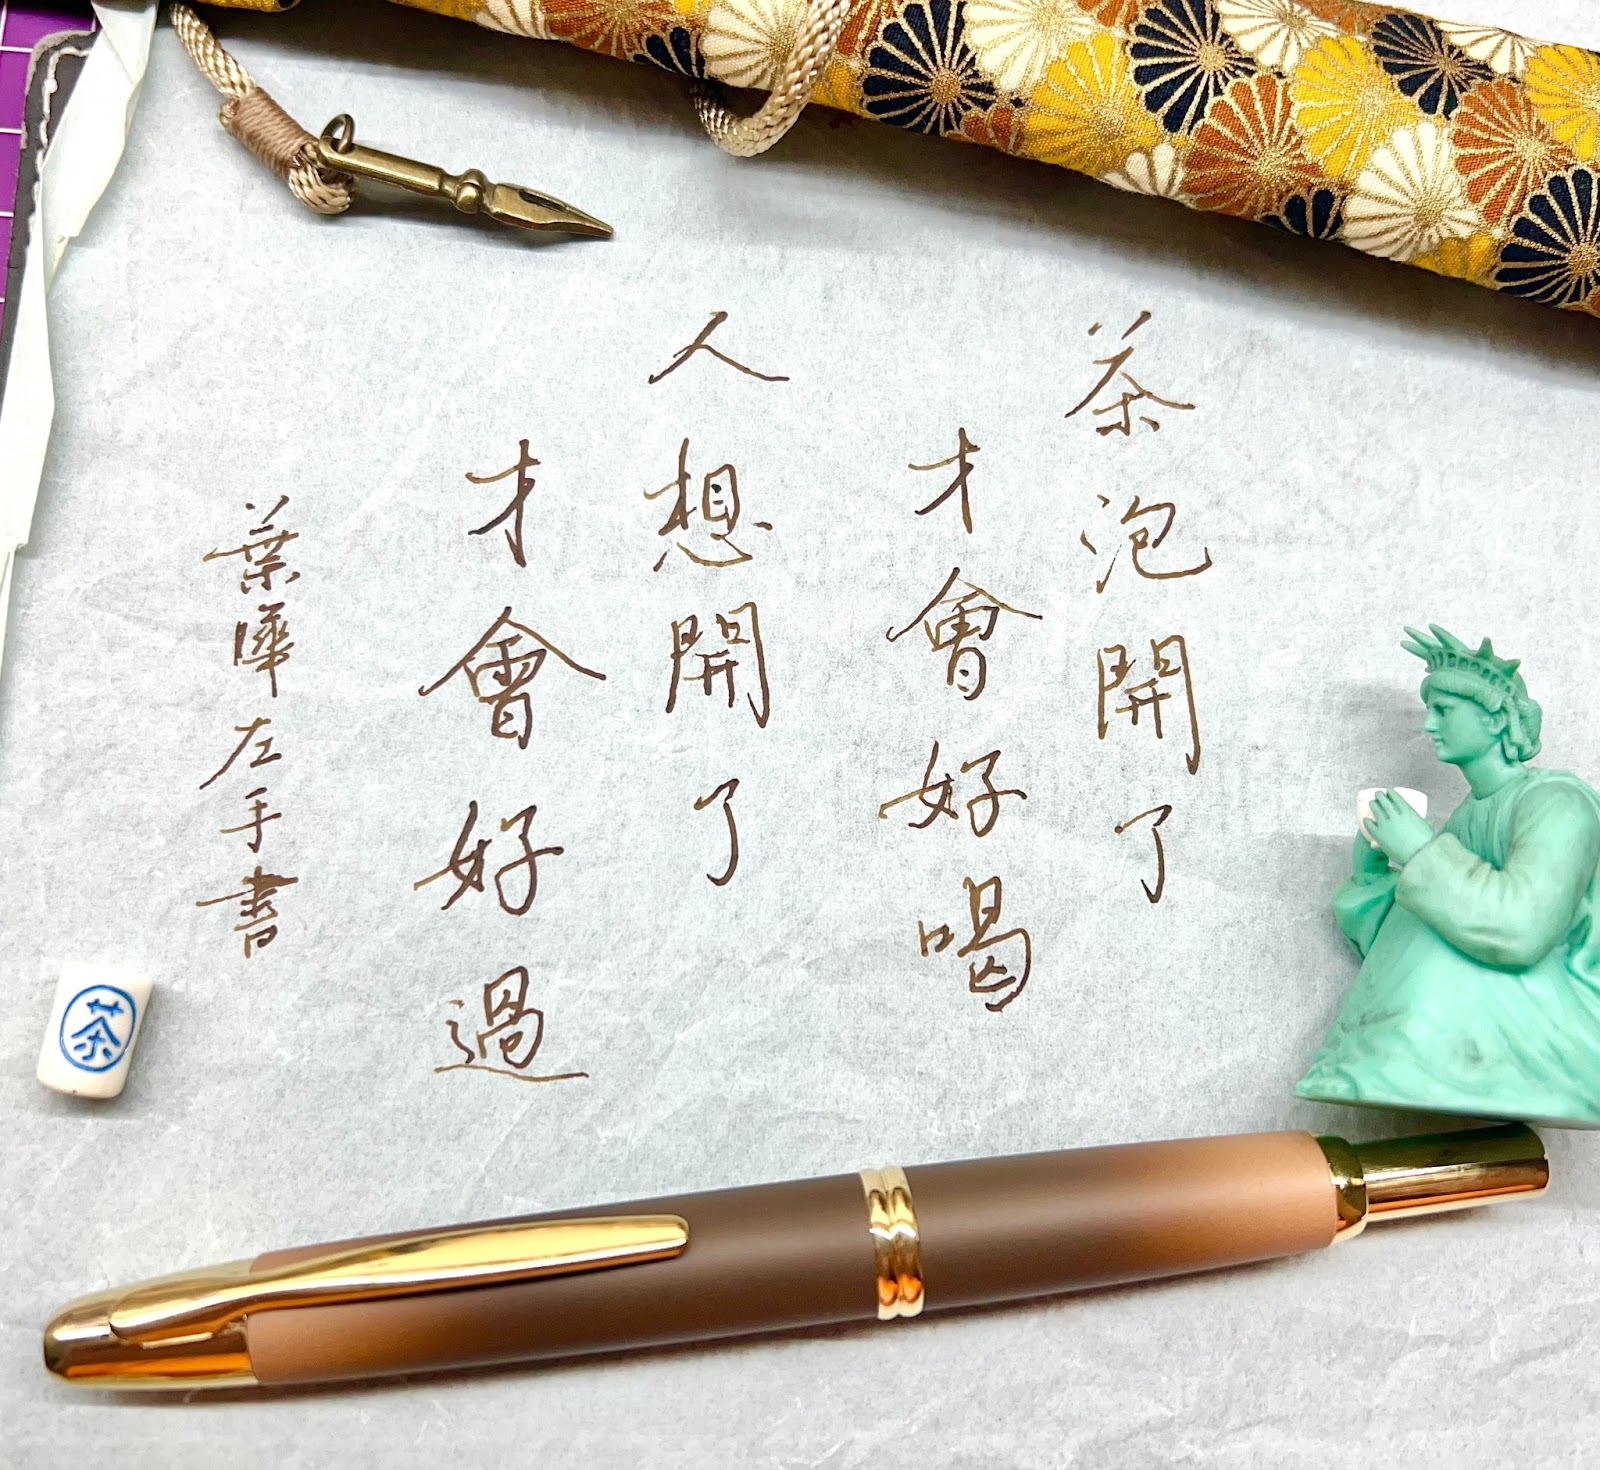 茶泡開了
才會好喝
人想開了
才會好過
葉曄左手書
茶